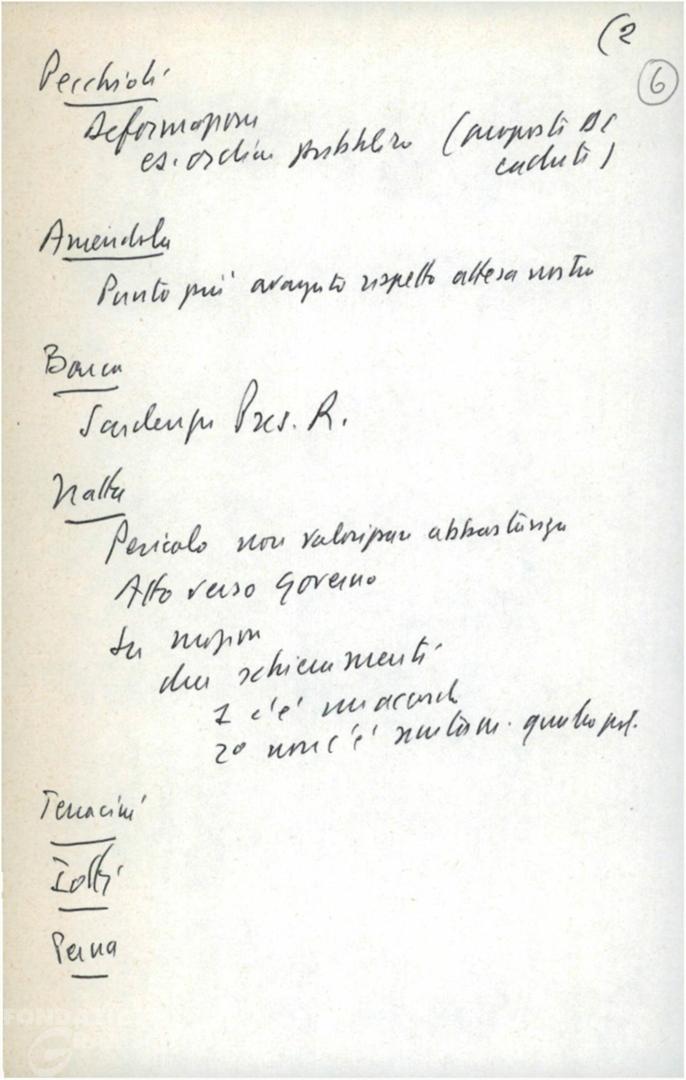 (2
6
Pecchioli
Deformazioni
es. ordine pubblico (proposti DC
caduti)
Amendola
Punto più avanzato rispetto attesa nostra
Bocca
Sardegna Pres. R.
Natta
Pericolo non valorizzare abbastanza
Atto verso Governo
Su mozione
due schieramenti
1 c'è un accordo
2° non c'è
Terracini
Iotti
Perna
FONDAZIO
G